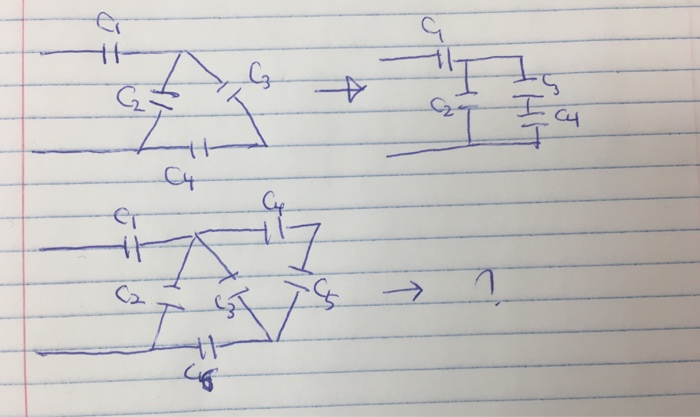 C1 C1
C2 C3 → C2 C3
C4 C4
C1 C4
C2 C3 C5 → ?
C6